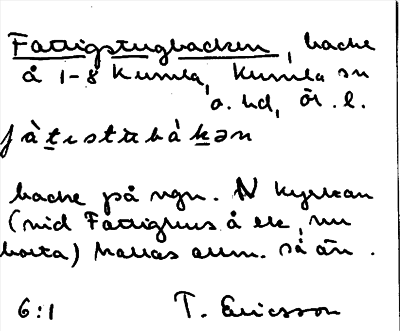 Fattigstugbacken, backe
å 1-8 Kumla, Kumla sn
o. hd, Ör. l.
backe på vgn. N kyrkan
(vid Fattighus å ek, nu
borta) kallas allm. så än.
6:1 T. Ericsson